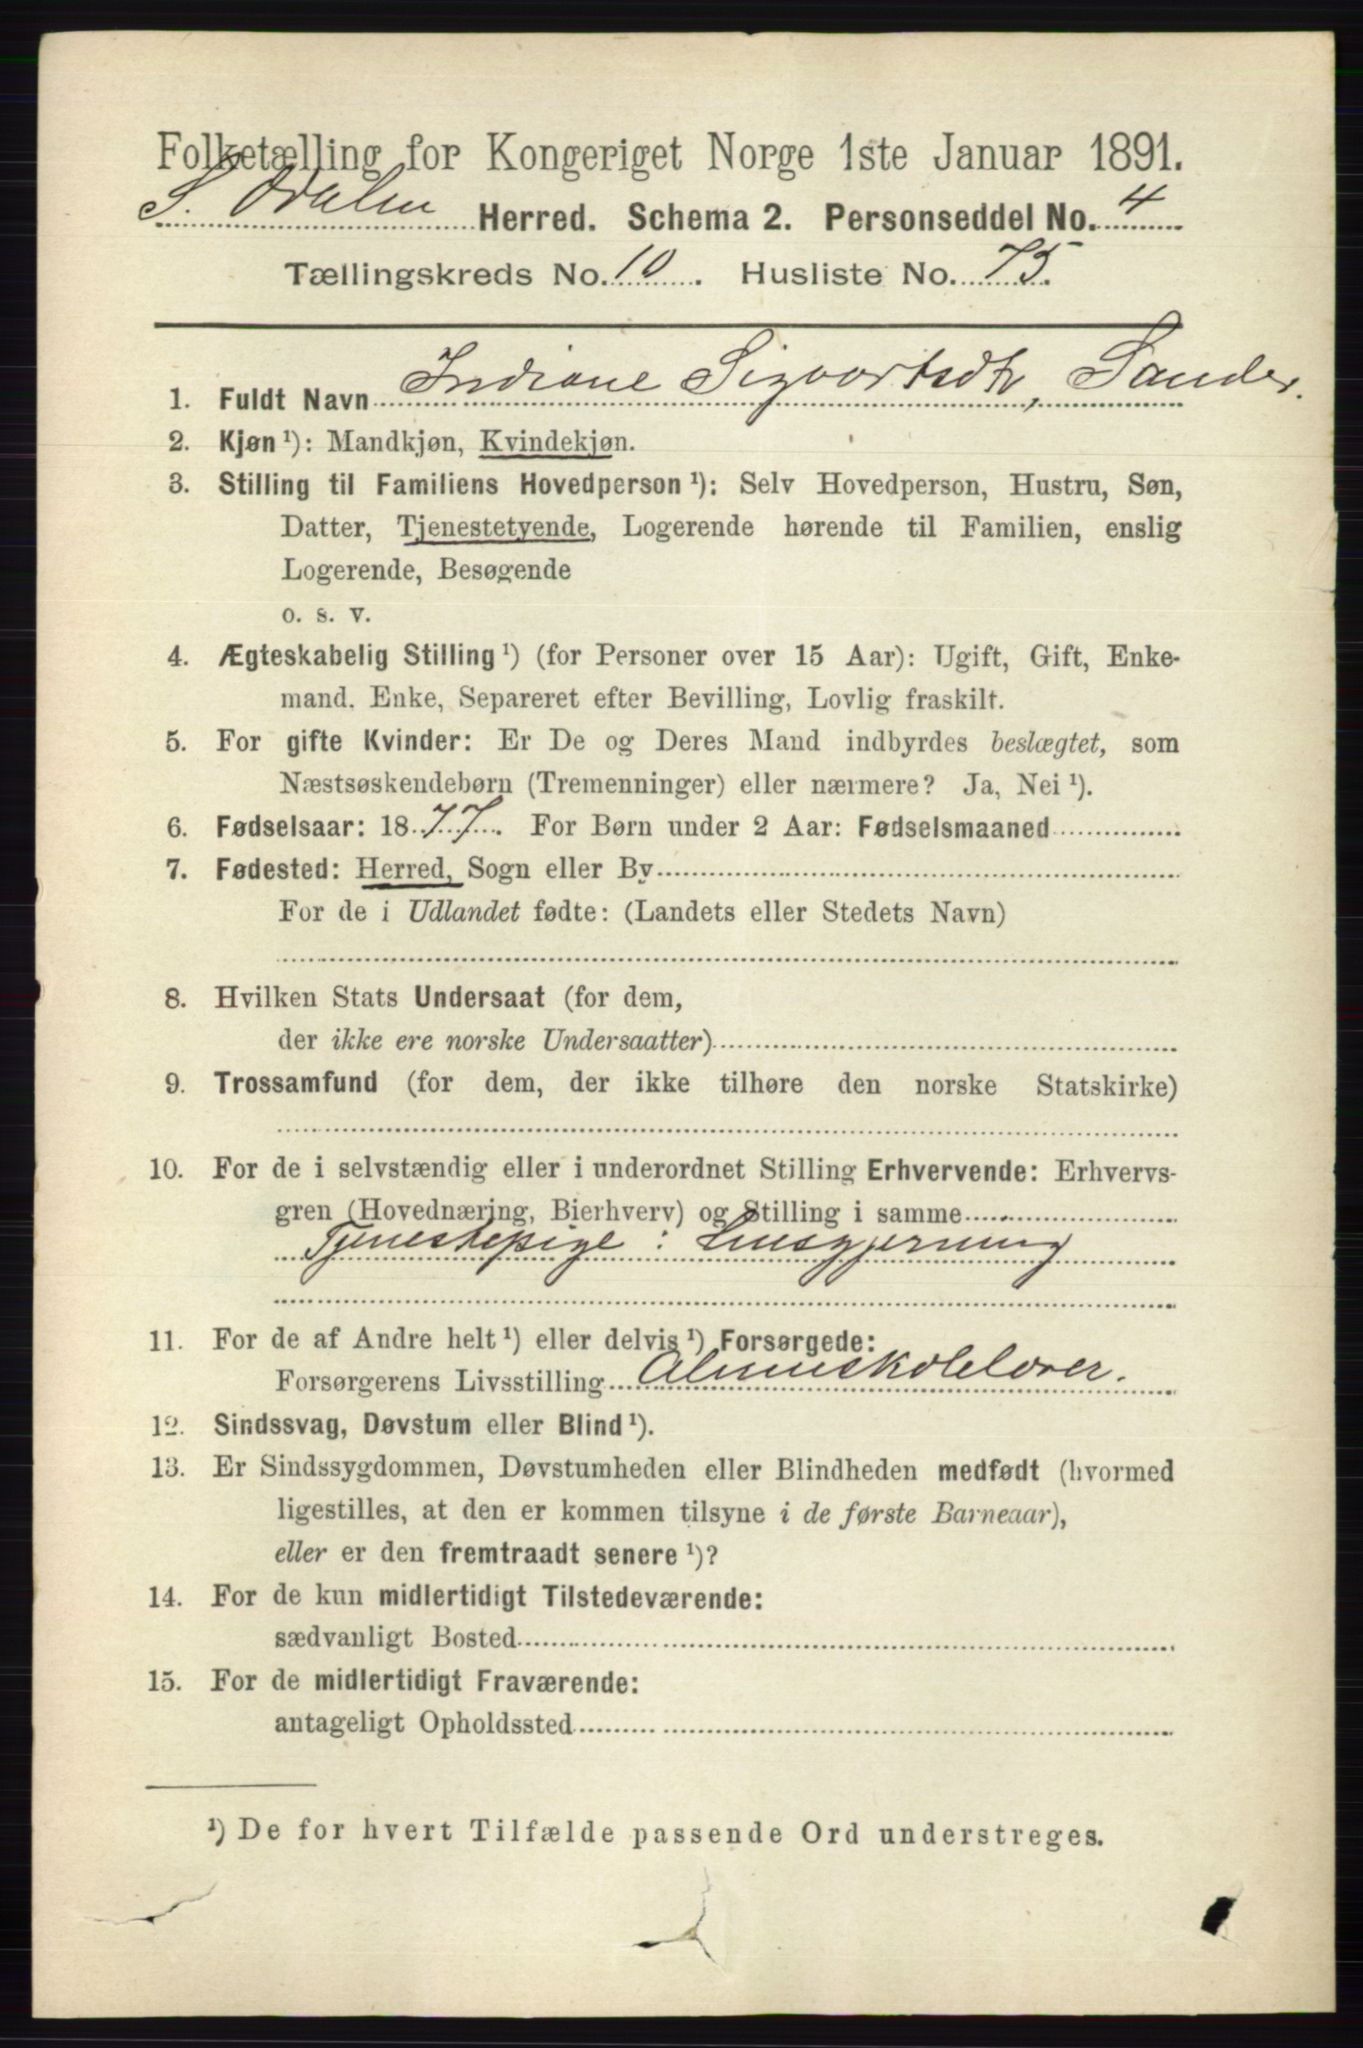 Folketælling for Kongeriget Norge 1ste Januar 1891.
S. Odalen Herred. Schema 2. Personseddel No. 4
Tællingskreds No. 10. Husliste No. 75.
1. Fuldt Navn Indiane Sigvartsdtr, Sander.
2. Kjøn ¹): Mandkjøn, Kvindekjøn.
3. Stilling til Familiens Hovedperson ¹): Selv Hovedperson, Hustru, Søn,
Datter, Tjenestetyende, Logerende hørende til Familien, enslig
Logerende, Besøgende
o. s. v.
4. Ægteskabelig Stilling ¹) (for Personer over 15 Aar): Ugift, Gift, Enke-
mand, Enke, Separeret efter Bevilling, Lovlig fraskilt.
5. For gifte Kvinder: Er De og Deres Mand indbyrdes beslægtet, som
Næstsøskendebørn (Tremenninger) eller nærmere? Ja, Nei ¹).
6. Fødselsaar: 1877. For Børn under 2 Aar: Fødselsmaaned
7. Fødested: Herred, Sogn eller By
For de i Udlandet fødte: (Landets eller Stedets Navn)
8. Hvilken Stats Undersaat (for dem,
der ikke ere norske Undersaatter)
9. Trossamfund (for dem, der ikke tilhøre den norske Statskirke)
10. For de i selvstændig eller i underordnet Stilling Erhvervende: Erhvervs-
gren (Hovednæring, Bierhverv) og Stilling i samme
Tjenestepige: husgjerning
11. For de af Andre helt ¹) eller delvis ¹) Forsørgede:
Forsørgerens Livsstilling
12. Sindssvag, Døvstum eller Blind ¹).
13. Er Sindssygdommen, Døvstumheden eller Blindheden medfødt (hvormed
ligestilles, at den er kommen tilsyne i de første Barneaar),
eller er den fremtraadt senere ¹)?
14. For de kun midlertidigt Tilstedeværende:
sædvanligt Bosted
15. For de midlertidigt Fraværende:
antageligt Opholdssted
¹) De for hvert Tilfælde passende Ord understreges.